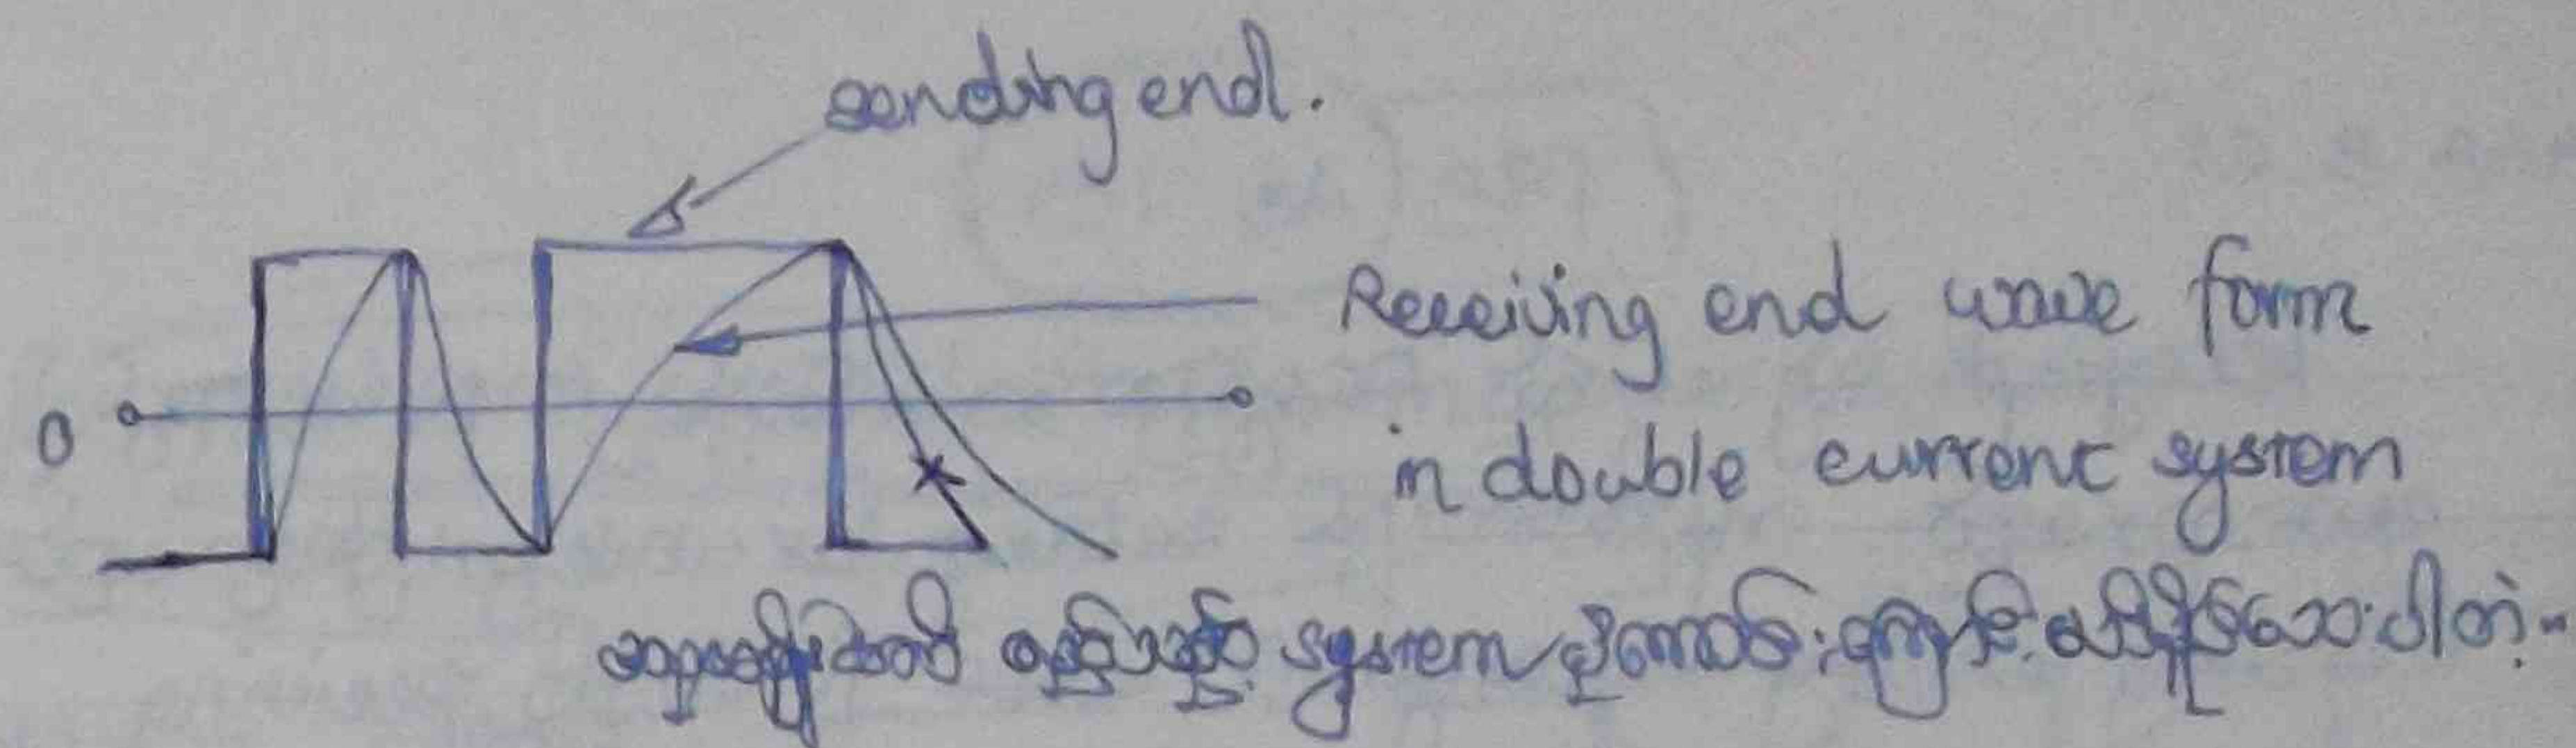 sending end.
Receiving end wave form
0
in double current system
မည်သည့် system ပိုကောင်းကြောင်း